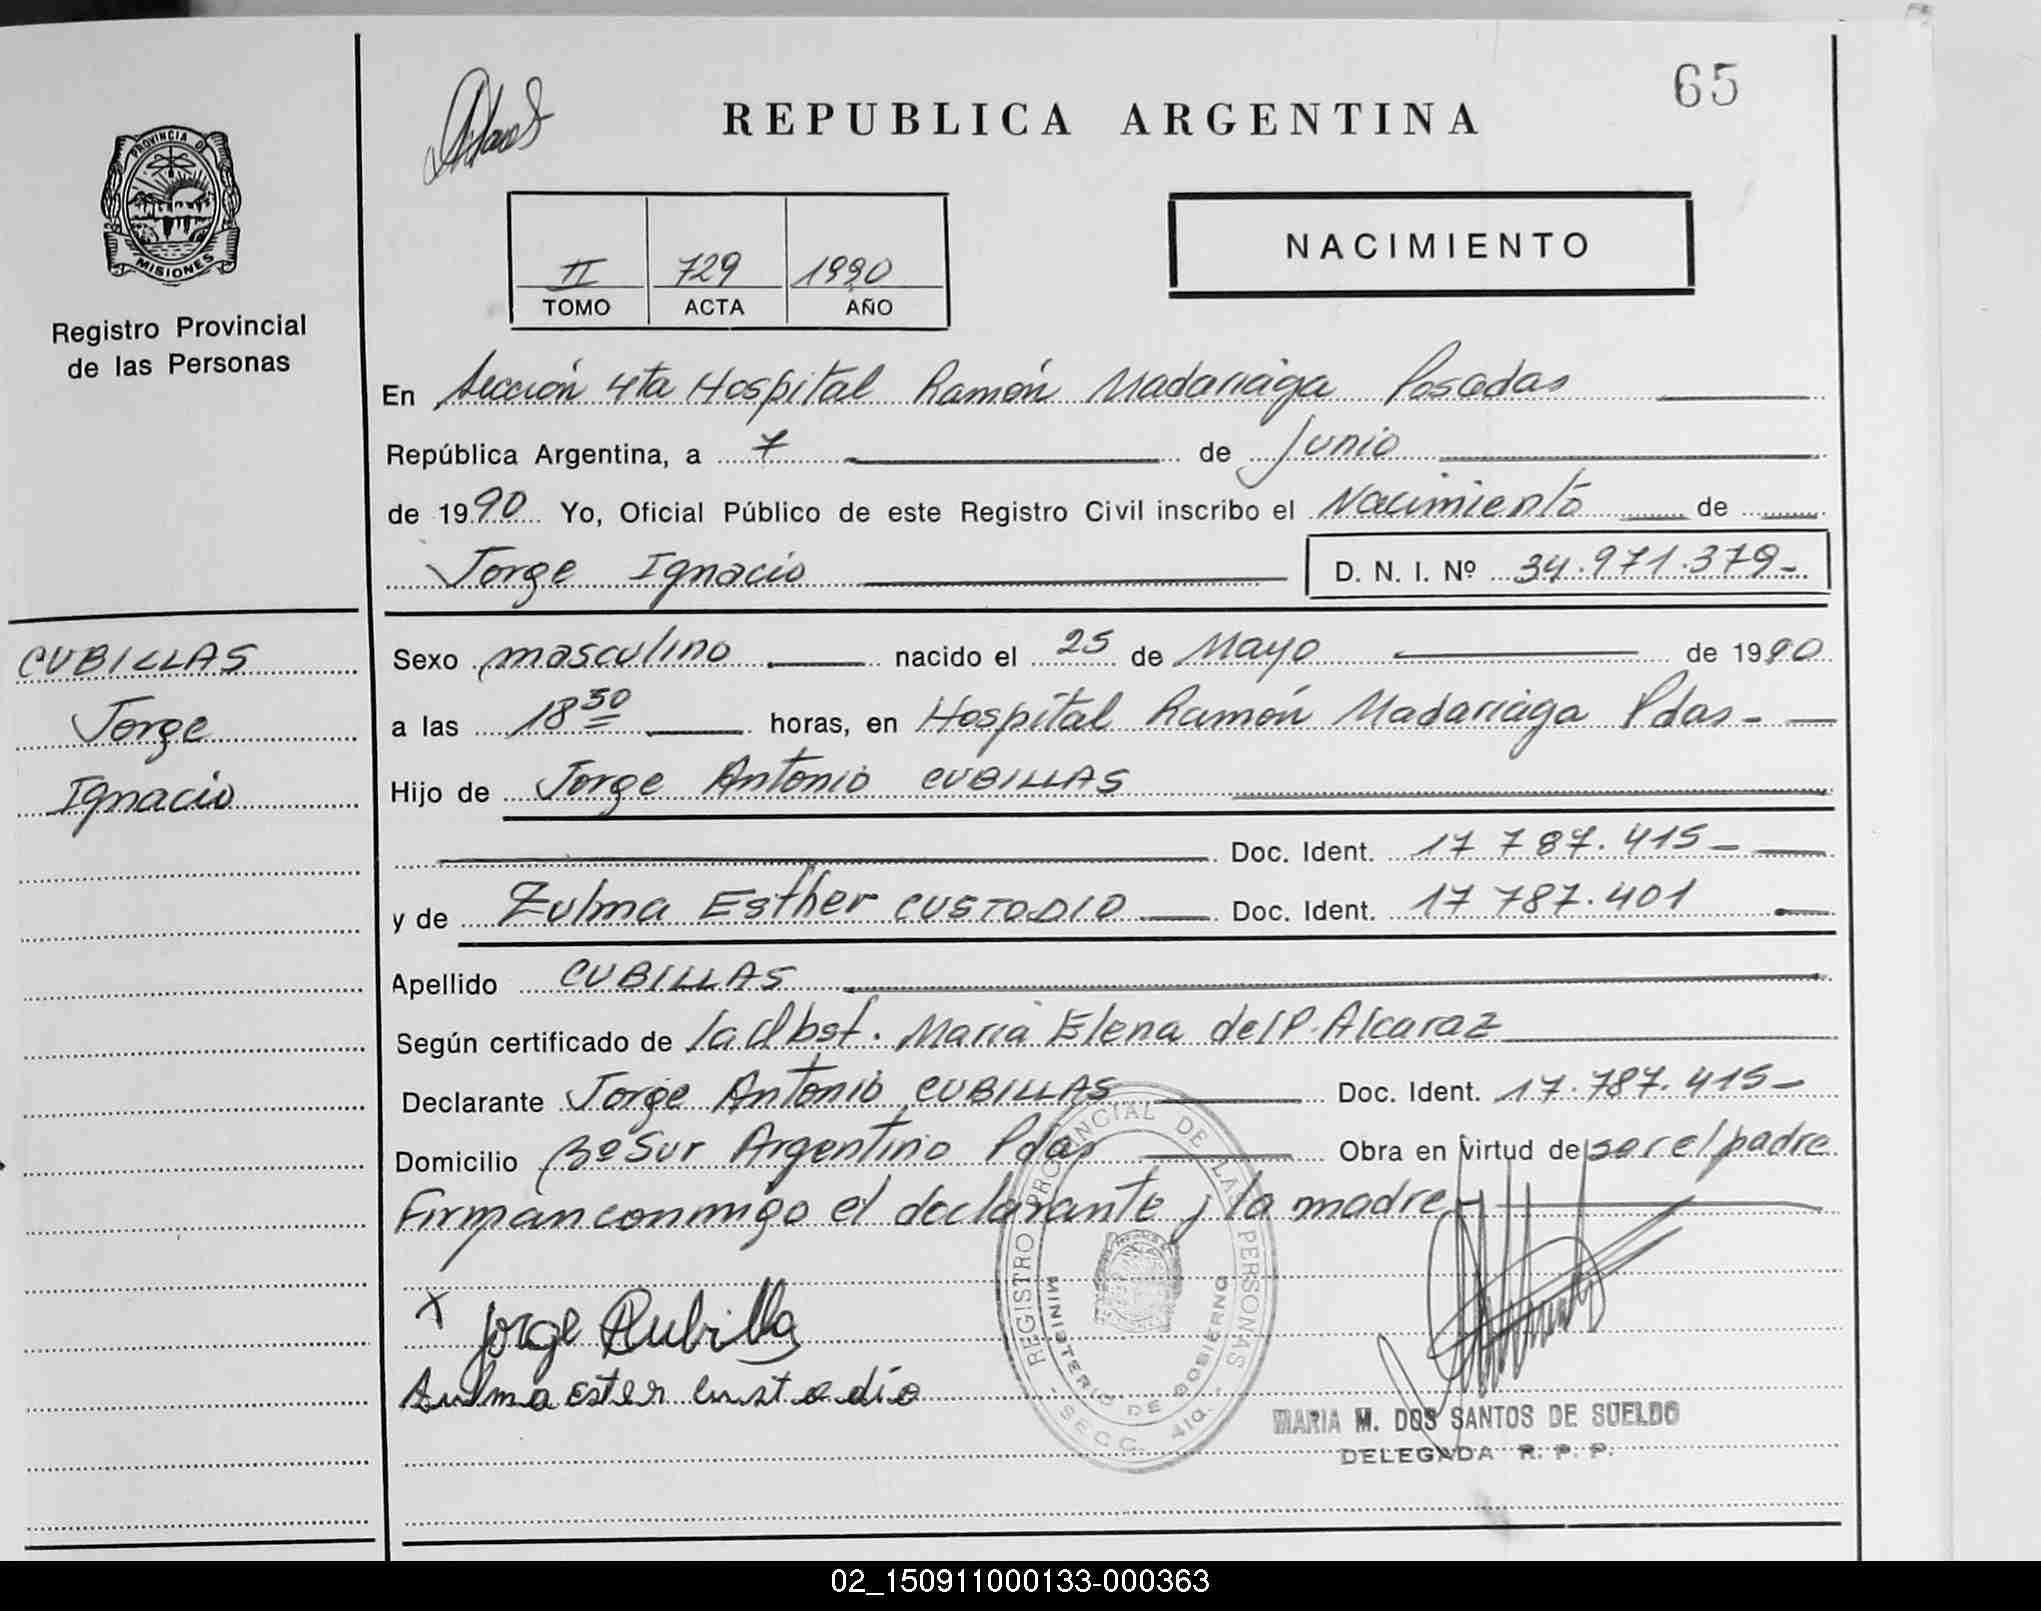 65
REPUBLICA ARGENTINA
PROVINCIA DE
MISIONES
Registro Provincial
de las Personas
NACIMIENTO
II 729 1990
TOMO ACTA AÑO
En Sección 4ta Hospital Ramón Madariaga Posadas
República Argentina, a 7 de Junio
de 1990 Yo, Oficial Público de este Registro Civil inscribo el Nacimiento de
Jorge Ignacio D. N. I. Nº 34.971.379-
CUBILLAS
Jorge
Ignacio
Sexo masculino nacido el 25 de Mayo de 1990
a las 18 30 horas, en Hospital Ramón Madariaga Pdas-
Hijo de Jorge Antonio CUBILLAS
Doc. Ident. 17 787.415-
y de Zulma Esther CUSTODIO Doc. Ident. 17 787.401
Apellido CUBILLAS
Según certificado de la Obst. María Elena del P. Alcaraz
Declarante Jorge Antonio CUBILLAS Doc. Ident. 17.787.415-
Domicilio Bº Sur Argentino Pdas Obra en virtud de ser el padre
Firman conmigo el declarante y la madre
x Jorge Cubilla
Zulma ester custodio
REGISTRO PROVINCIAL DE LAS PERSONAS
MINISTERIO DE GOBIERNO
- SECC. 4ta. -
MARIA M. DOS SANTOS DE SUELDO
DELEGADA R. P. P.
02_150911000133-000363